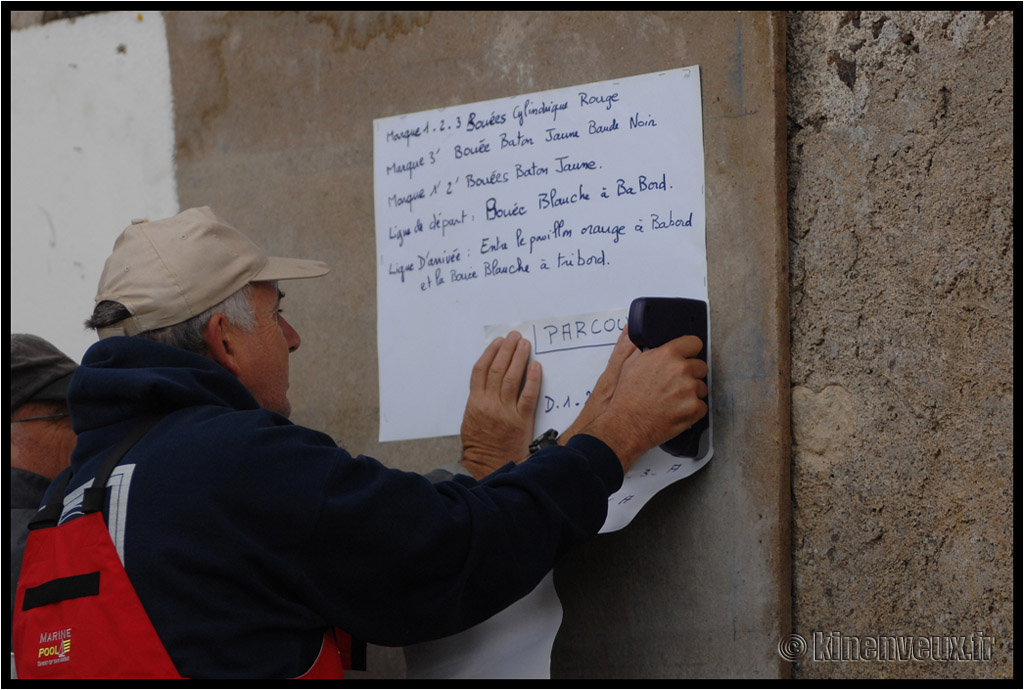 Marque 1 - 2 - 3 Bouées Cylindrique Rouge
Marque 3' Bouée Baton Jaune Bande Noir
Marque 1' 2' Bouées Baton Jaune.
Ligne de départ : Bouée Blanche à BaBord.
Ligne D'arrivée : Entre le pavillon orange à Babord
et la Bouée Blanche à tribord.
PARCOU
D. 1. 2
3 - A
A
MARINE
POOL
© kinenveux.fr